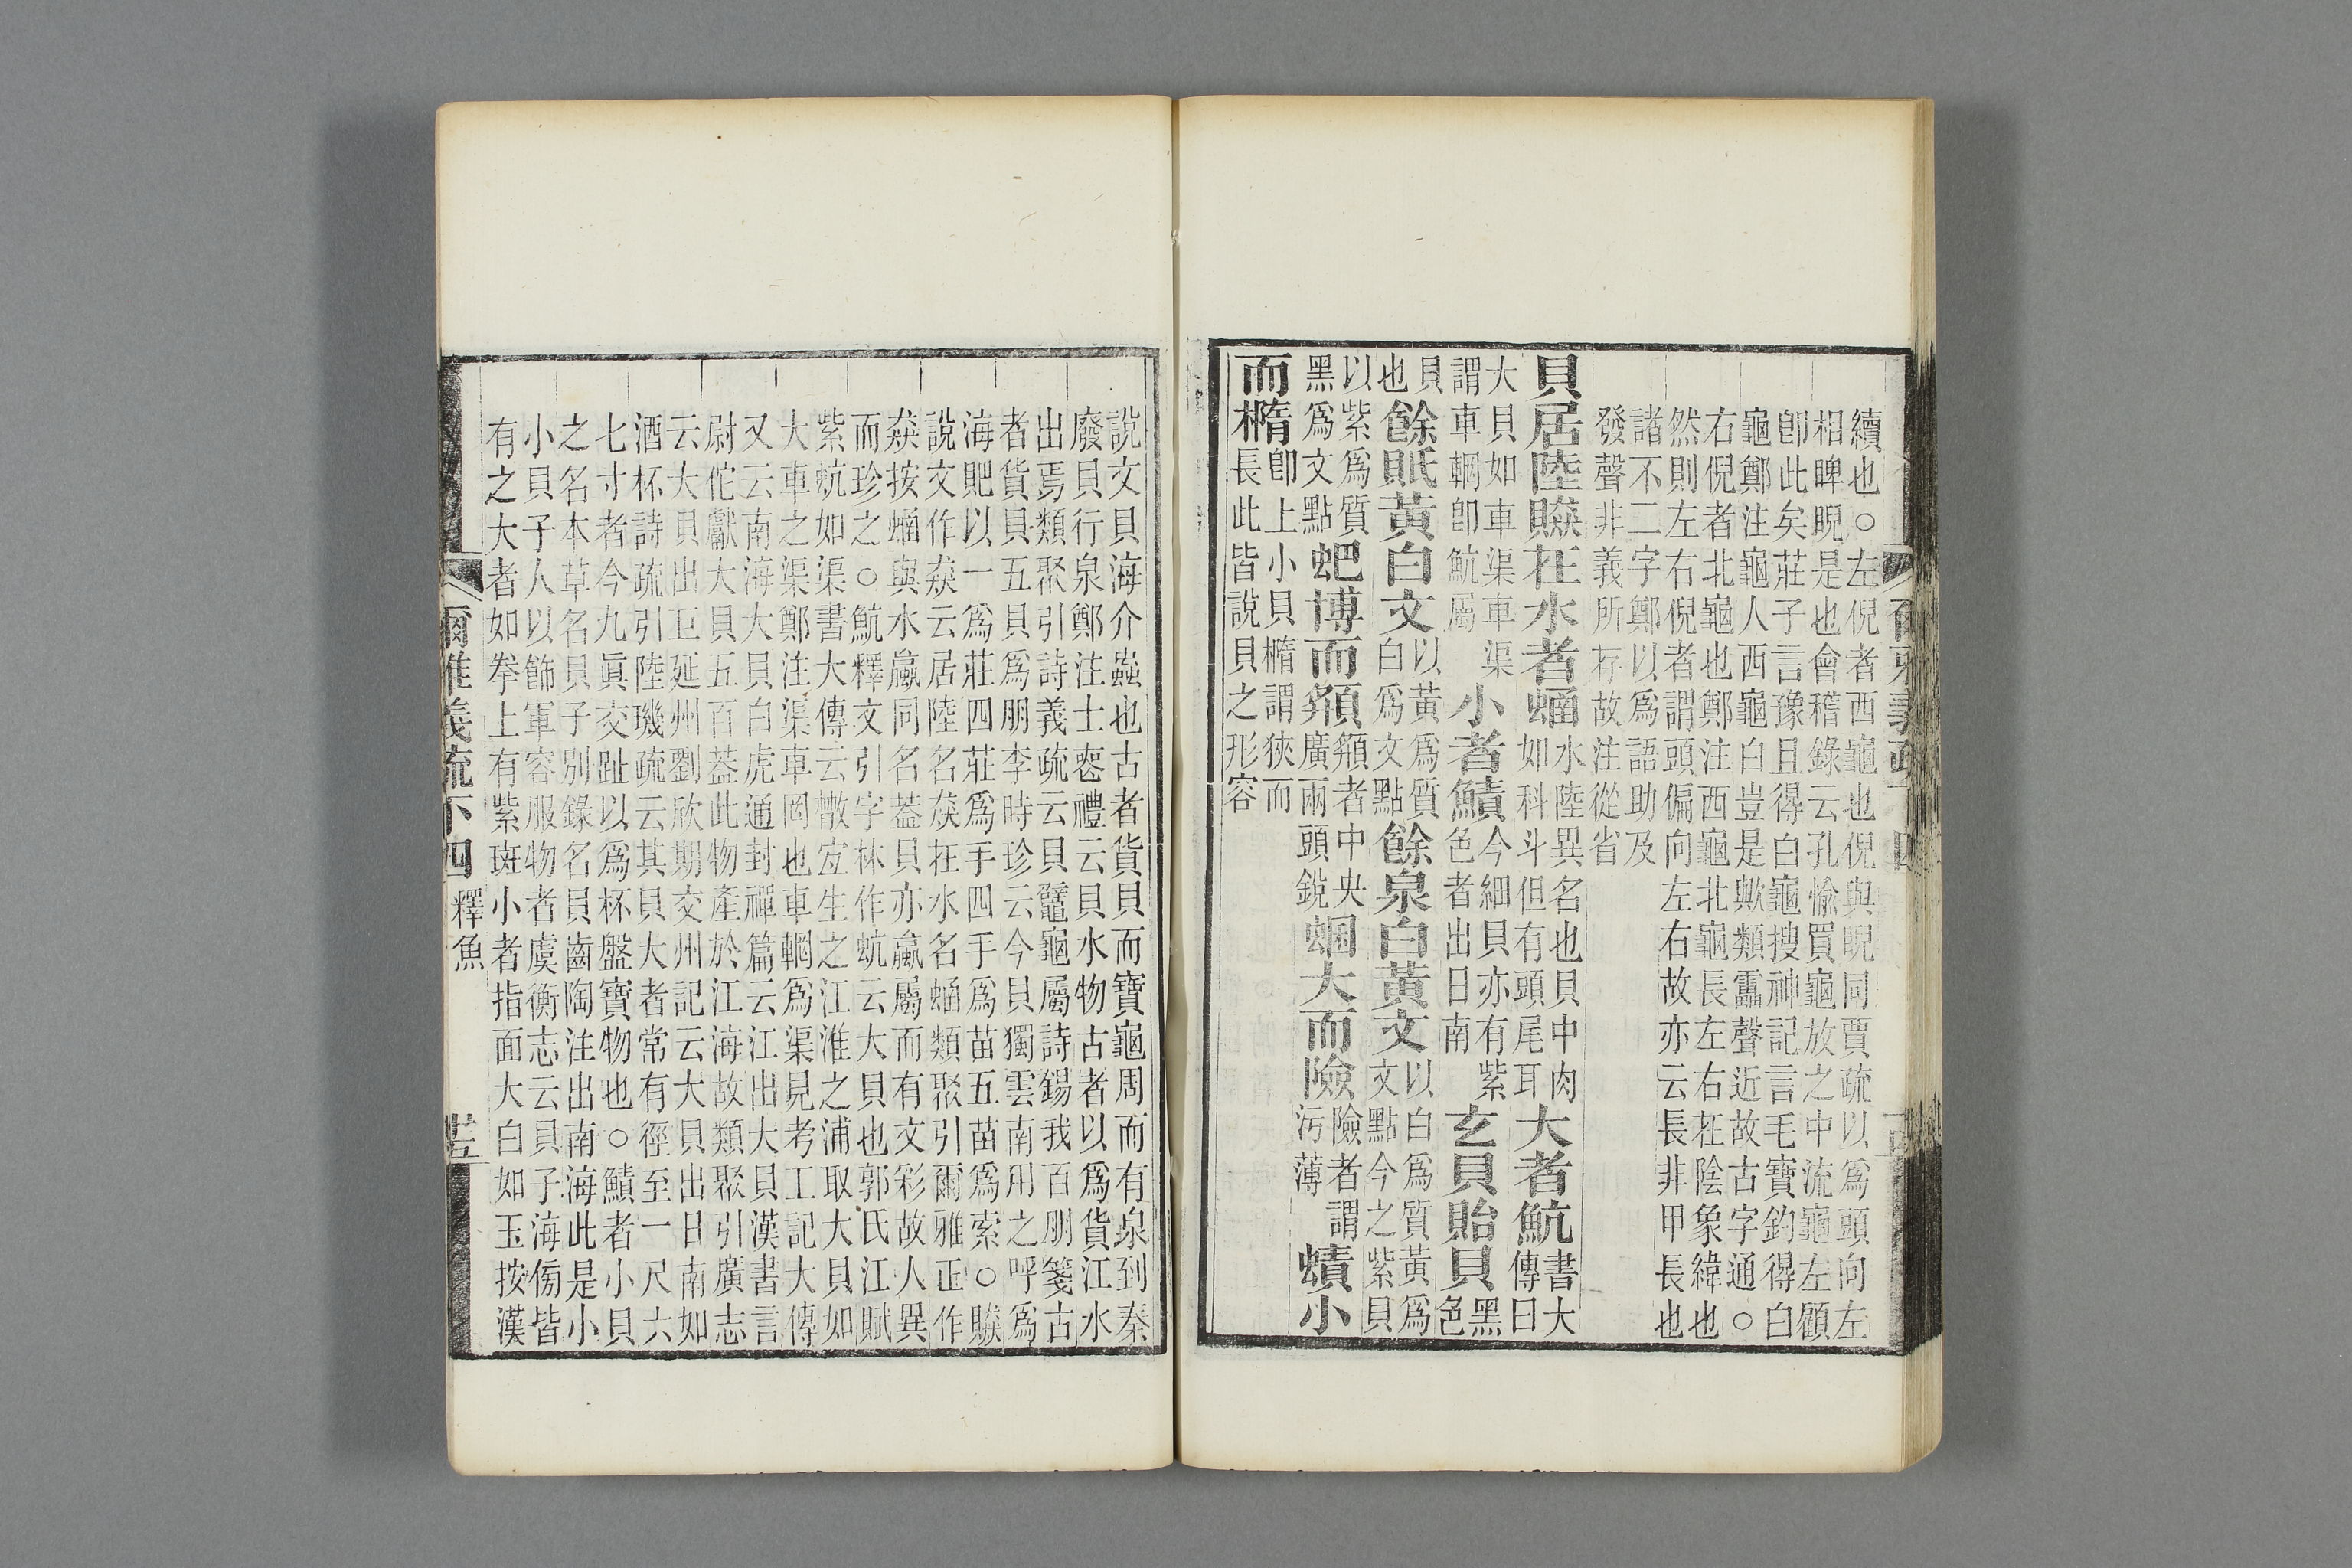 續也○左倪者西龜也倪與睨同賈疏以爲頭向左
相睥睨是也會稽錄云孔愉買龜放之中流龜左顧
卽此矣莊子言豫且得白龜搜神記言毛寶釣得白
龜鄭注龜人西龜白豈是歟類靁聲近故古字通○
右倪者北龜也鄭注西龜北龜長左右在陰象緯也
然則左右倪者謂頭偏向左右故亦云長非甲長也
諸不二字鄭以爲語助及
發聲非義所存故注從省
貝居陸贆在水者蜬水陸異名也貝中肉如科斗但有頭尾耳大者魧書大傳曰
大貝如車渠車渠謂車輞卽魧屬小者鰿今細貝亦有紫色者出日南玄貝貽貝黑色
貝也餘貾黃白文以黃爲質白爲文點餘泉白黃文以白爲質黃爲文點今之紫貝
以紫爲質黑爲文點蚆博而頯頯者中央廣兩頭銳蜠大而險險者謂污薄蟦小
而橢卽上小貝橢謂狹而長此皆說貝之形容
說文貝海介蟲也古者貨貝而寶龜周而有泉到秦
廢貝行泉鄭注士喪禮云貝水物古者以爲貨江水
出焉類聚引詩義疏云貝鼊龜屬詩錫我百朋箋古
者貨貝五貝爲朋李時珍云今貝獨雲南用之呼爲
海肥以一爲莊四莊爲手四手爲苗五苗爲索○贆
說文作猋云居陸名猋在水名蜬類聚引爾雅正作
猋按蜬與水蠃同名葢貝亦蠃屬而有文彩故人異
而珍之○魧釋文引字林作蚢云大貝也郭氏江賦
紫蚢如渠書大傳云散宜生之江淮之浦取大貝如
大車之渠鄭注渠車罔也車輞爲渠見考工記大傳
又云南海大貝白虎通封禪篇云江出大貝漢書言
尉佗獻大貝五百葢此物產於江海故類聚引廣志
云大貝出巨延州劉欣期交州記云大貝出日南如
酒杯詩疏引陸璣疏云其貝大者常有徑至一尺六
七寸者今九眞交趾以爲杯盤寶物也○鰿者小貝
之名本草名貝子別錄名貝齒陶注出南海此是小
小貝子人以飾軍容服物者虞衡志云貝子海傍皆
有之大者如拳上有紫斑小者指面大白如玉按漢
爾雅義疏下四 釋魚 廿五